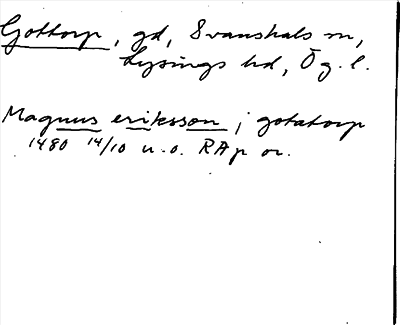 Gottorp, gd, Svanshals sn,
Lysings hd, Ög.l.
Magnus eriksson i gotatorp
1480 14/10 u.o. RAp or.